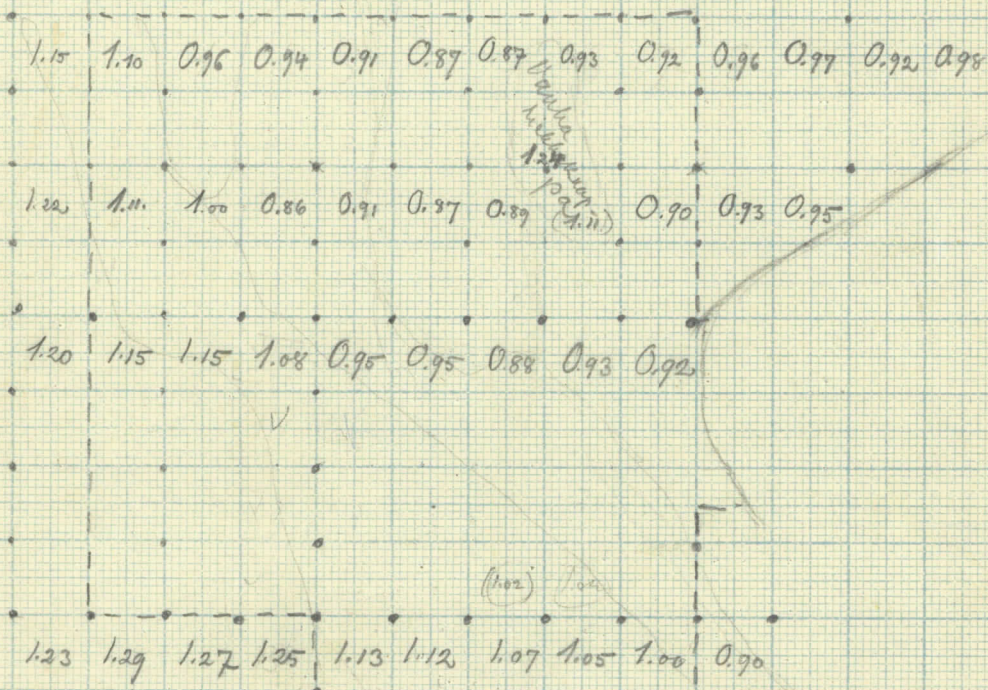 1.15 1.10 0.96 0.94 0.91 0.87 0.87 0.93 0.92 0.96 0.97 0.92 0.98
Vanha
1.24
1.22 1.11. 1.00 0.86 0.91 0.87 0.89 (1.11.) 0.90 0.93 0.95
1.20 1.15 1.15 1.08 0.95 0.95 0.88 0.93 0.92
V
(1.02)
1.23 1.29 1.27 1.25 1.13 1.12 1.07 1.05 1.00 0.90